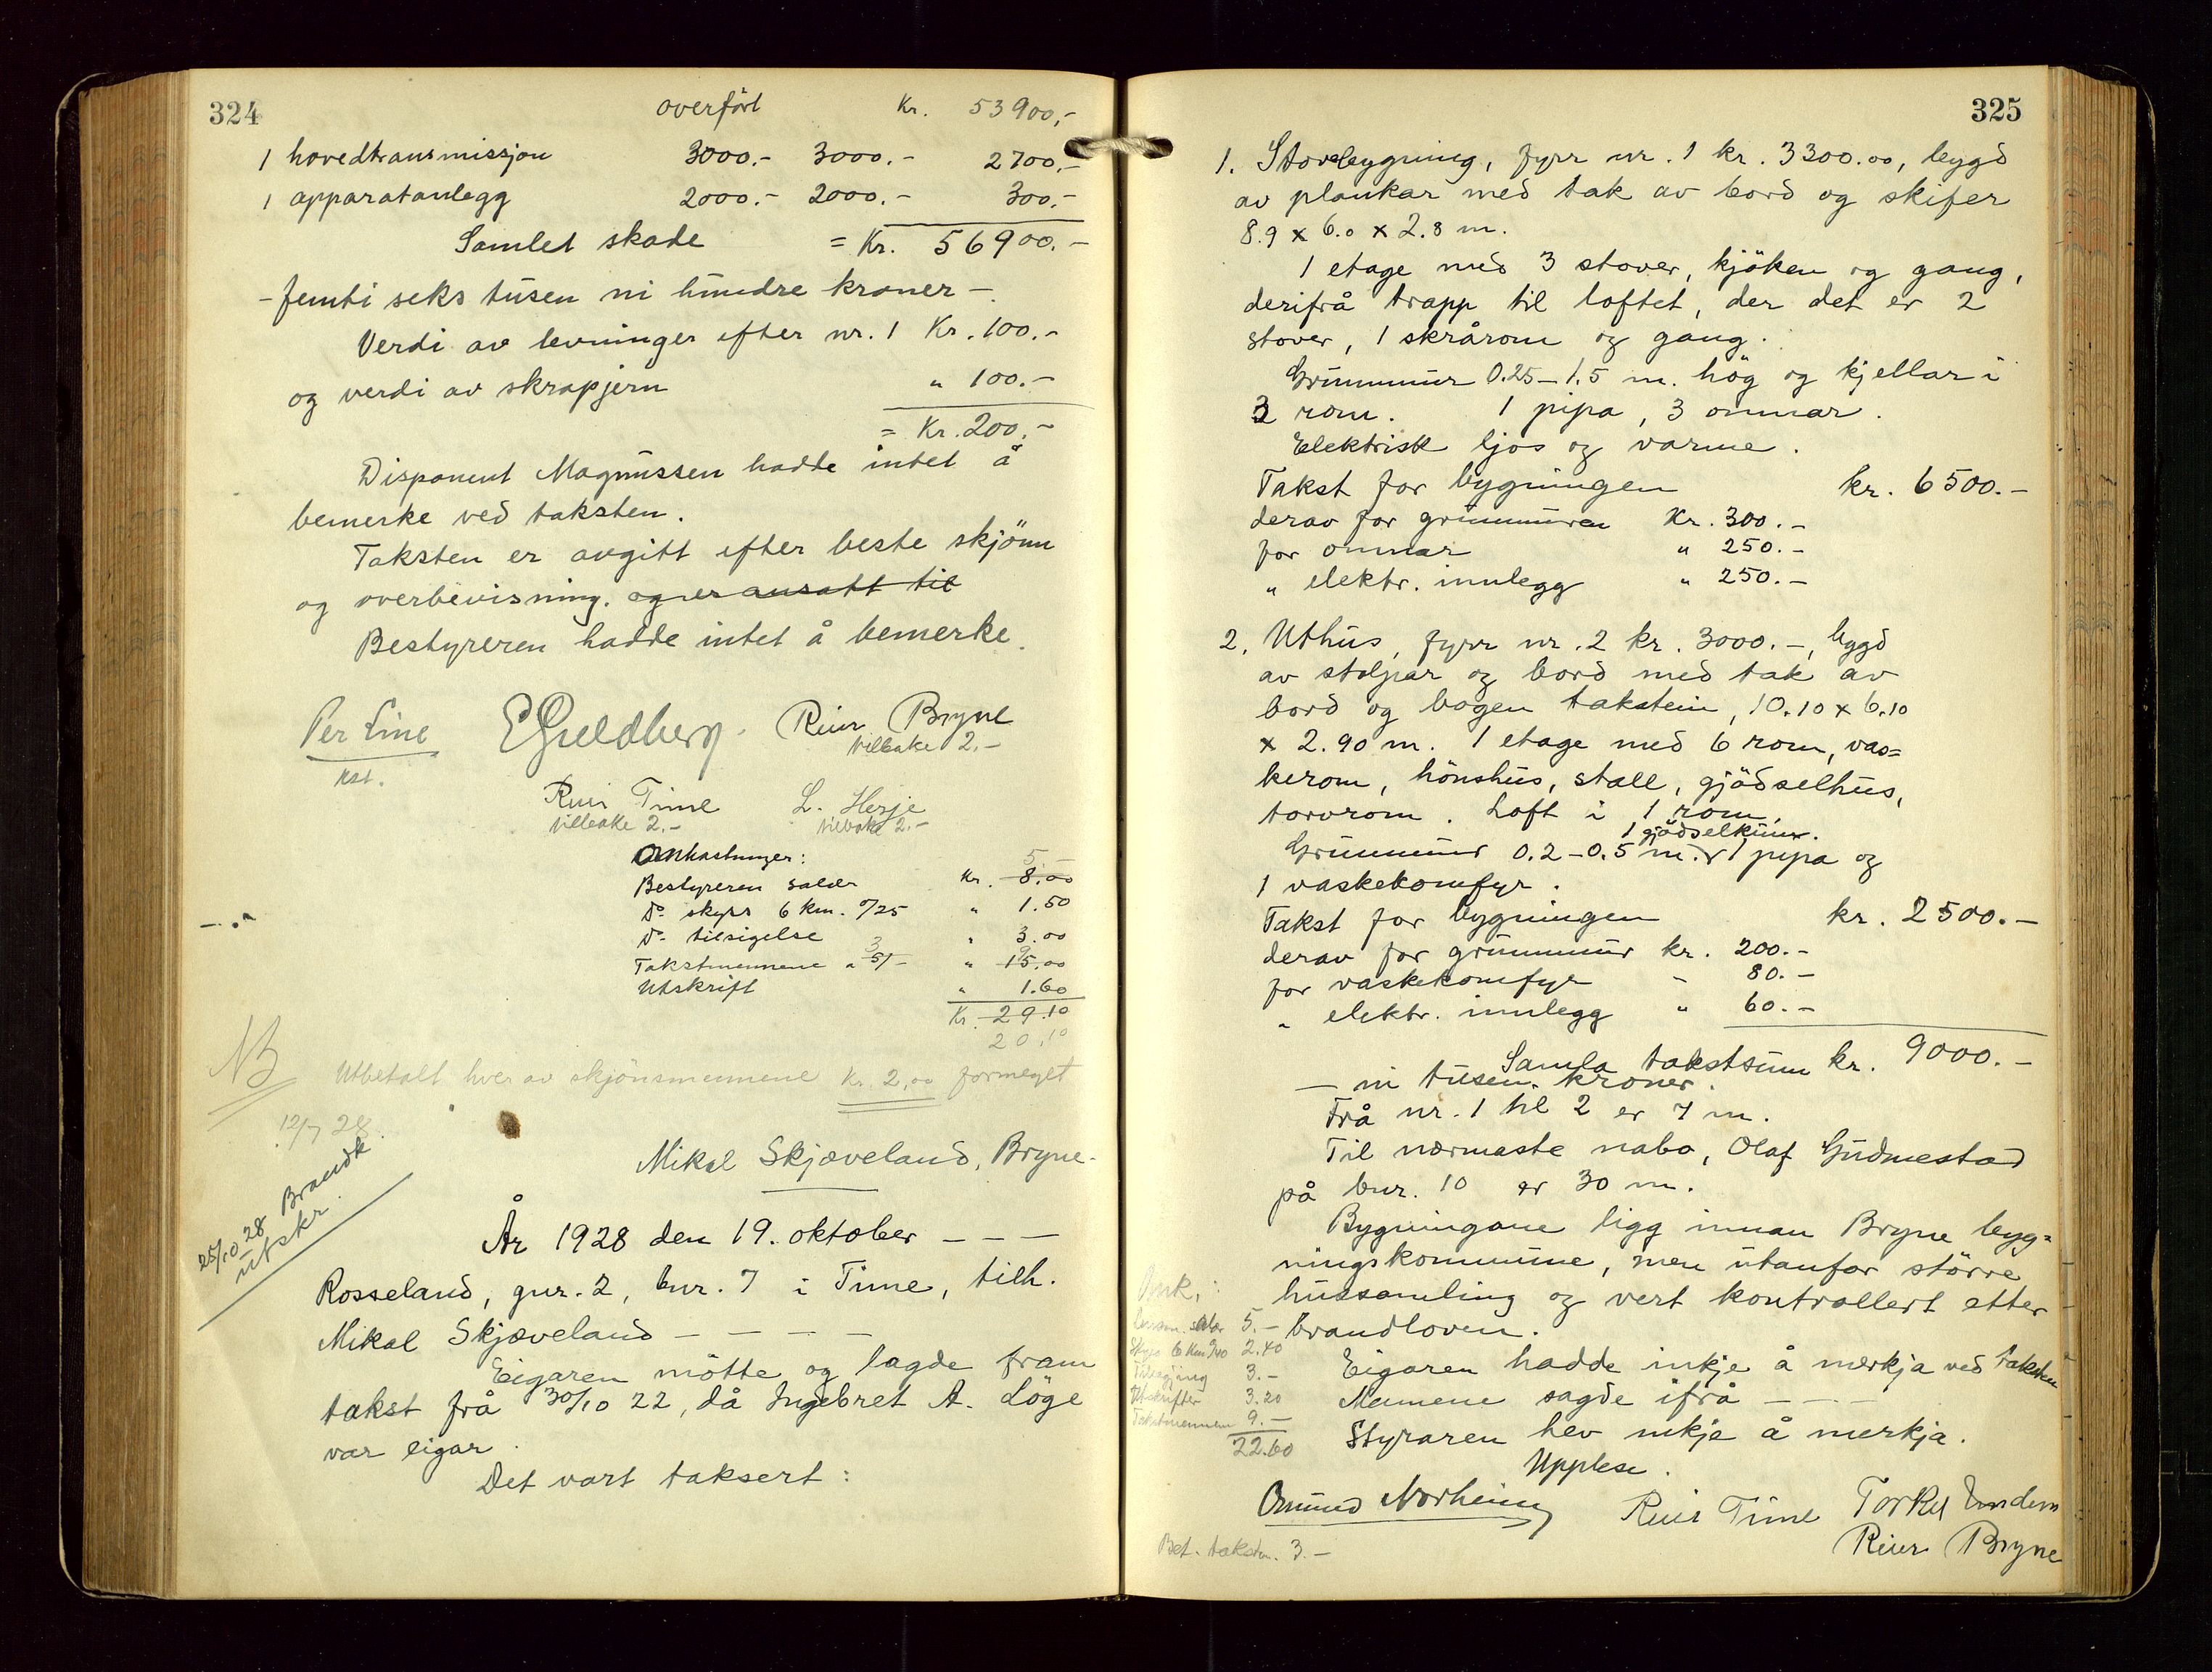 324
overfört Kr. 53900,-
1 hovedtransmissjon 3000.- 3000.- 2700.-
1 apparatanlegg 2000.- 2000.- 300.-
Samlet skade = Kr. 56900.-
- femti seks tusen ni hundre kroner -.
Verdi av levninger efter nr. 1 Kr. 100.-
og verdi av skrapjern " 100.-
= Kr. 200.-
Disponent Magnussen hadde intet å
bemerke ved taksten.
Taksten er avgitt efter beste skjönn
og overbevisning. og er ansatt til
Bestyreren hadde intet å bemerke.
Per Line
Reier Bryne
kst.
tilbake 2.-
Reier Time L. Herje
tilbake 2.- tilbake 2.-
Omkostninger:
5.-
Bestyreren salær Kr. 8.00
Do skyss 6 km. 0/25 " 1.50
Do tilsigelse " 3.00
3 9
Takstmennene a 5/- " 15.00
Utskrift " 1.60
Kr. 29.10
20.10
NB Utbetalt hver av skjönsmennene Kr. 2,00 formeget
12/7 28.
Mikal Skjæveland, Bryne.
25/10 28 Brandk
utskr.
År 1928 den 19. oktober - - -
Rosseland, gnr. 2, bnr. 7 i Time, tilh.
Mikal Skjæveland - - - -
Eigaren mötte og lagde fram
takst frå 30/10 22, då Ingebret A. Löge
var eigar.
Det vart taksert:
325
1. Stovebygning, fyrr nr. 1 kr. 3300.00, bygd
av plankar med tak av bord og skifer
8.9 x 6.0 x 2.8 m.
1 etage med 3 stover, kjöken og gang,
derifrå trapp til loftet, der det er 2
stover, 1 skrårom og gang.
Grunnmur 0.25-1.5 m. hög og kjellar i
3 rom. 1 pipa, 3 omnar.
Elektrisk ljos og varme.
Takst for bygningen kr. 6500.-
derav for grunnmuren Kr. 300.-
for omnar " 250.-
" elektr. innlegg " 250.-
2. Uthus, fyrr nr. 2 kr. 3000.-, bygd
av stolpar og bord med tak av
bord og bogen takstein, 10.10 x 6.10
x 2.90 m. 1 etage med 6 rom, vas=
kerom, hönshus, stall, gjödselhus,
torvrom. Loft i 1 rom.
1 gjödselkum.
Grunnmur 0.2-0.5 m. 1 pipa og
1 vaskekomfyr.
Takst for bygningen kr. 2500.-
derav for grunnmur kr. 200.-
for vaskekomfyr " 80.-
" elektr. innlegg " 60.-
Samla takstsum kr. 9000.-
- ni tusen kroner.
Frå nr. 1 til 2 er 7 m.
Til nærmaste nabo, Olaf Gudmestad
på bnr. 10 er 30 m.
Bygningane ligg innan Bryne byg=
ningskommune, men utanfor större
hussamling og vert kontrollert etter
brandloven.
Eigaren hadde inkje å merkja ved taksten
Mennene sagde ifrå - - -
Styraren hev inkje å merkja.
Upplese.
Omk.:
salær 5.-
Skyss 6 km 0/40 2.40
Tilseiing 3.-
Utskrifter 3.20
Takstmennene 9.-
22.60
Osmund Norheim Reier Time Torkel
Reier Bryne
Bet. takstm. 3.-